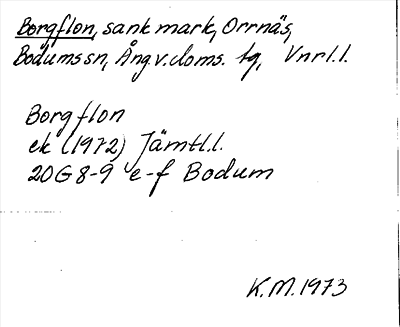 Borgflon, sank mark, Orrnäs,
Bodumssn, Ång.v.doms. tg, Vnrl.l.
Borgflon
ek (1972) Jämtl.l.
20G 8-9 e-f Bodum
K.M. 1973